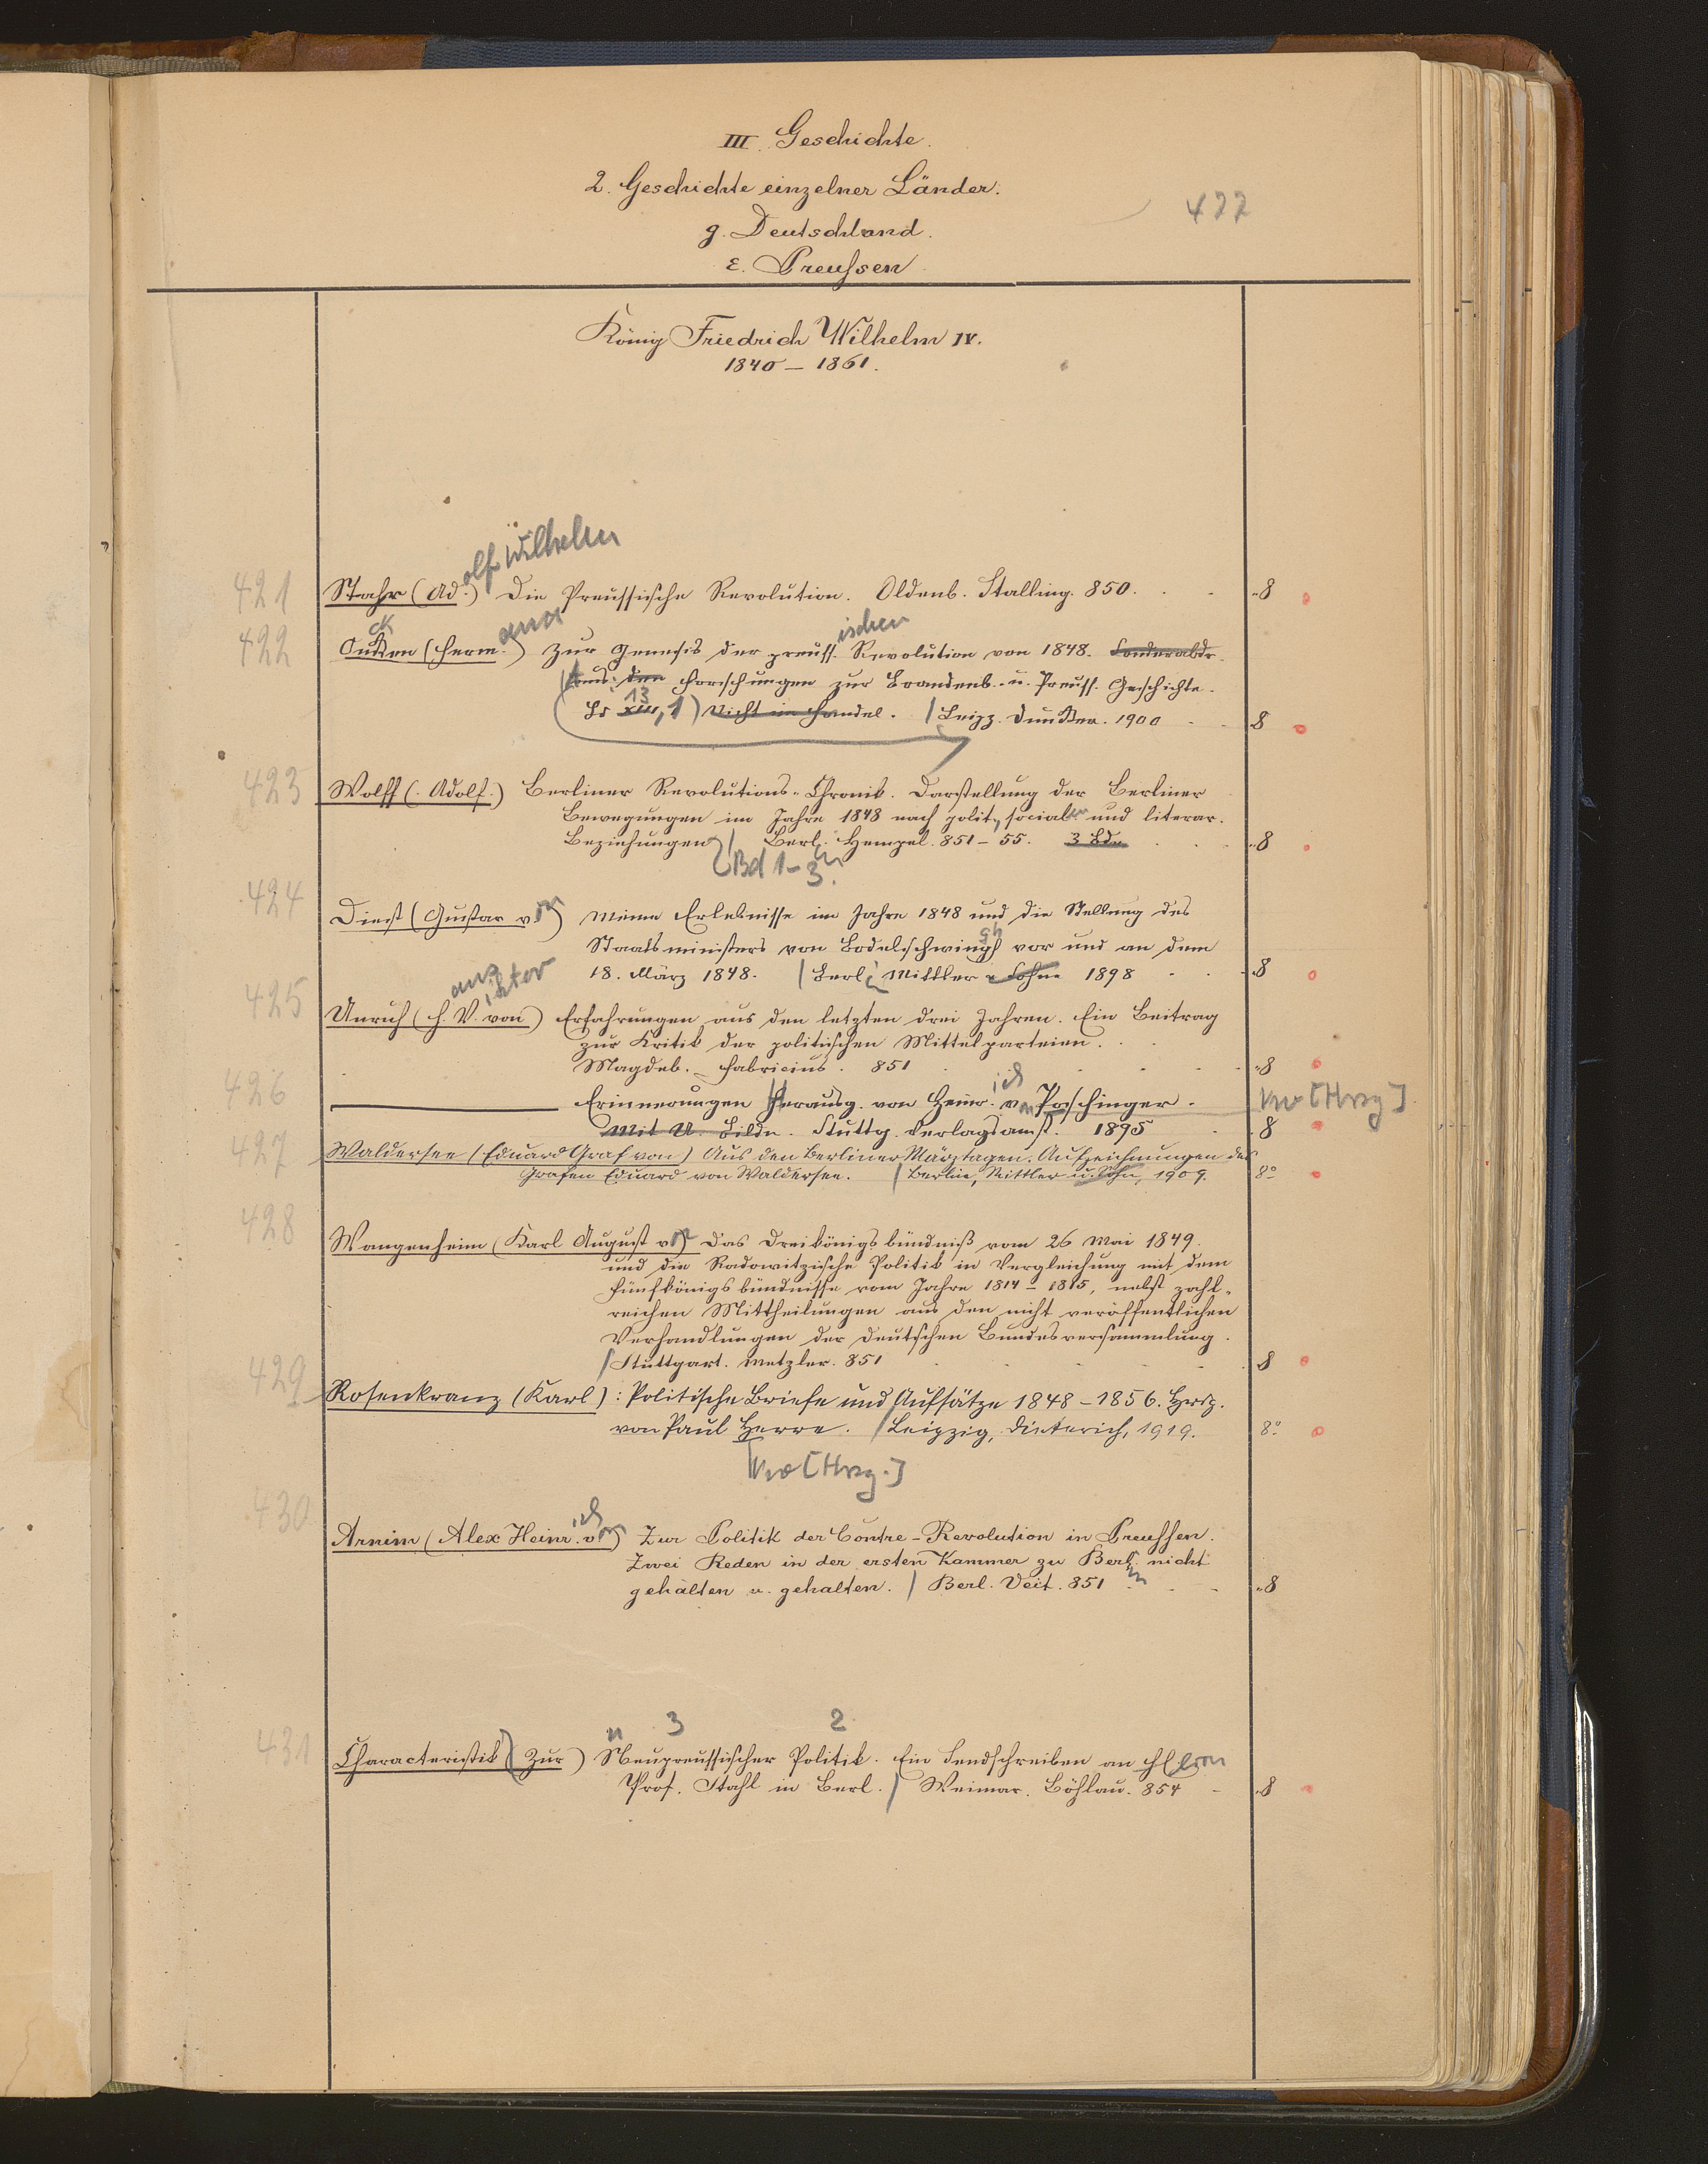 III. Geschichte.
2. Geschichte einzelner Länder.
477
g. Deutschland.
ε. Preussen
König Friedrich Wilhelm IV.
1840 – 1861.
olf Wilhelm
421 Stahr (Ad.) Die Preussische Revolution. Oldenb. Stalling. 850. 8
ck ana ischen
422 Oncken (Herm.) Zur Genesis der preuss. Revolution von 1848. Sonderabdr.
(Aus: den Forschungen zur Brandenb.- u. Preuss. Geschichte.
13
Bd XIII, 1) Nicht im Handel. / Leipz. Duncker. 1900 8
423 Wolff (Adolf.) Berliner Revolutions-Chronik. Darstellung der Berliner
Bewegungen im Jahre 1848 nach polit., socialen und literar.
Beziehungen / Berl. Hempel. 851 – 55. 3 Bde. 8
Bd 1–3.
424 Diest (Gustav von) Meine Erlebnisse im Jahre 1848 und die Stellung des
gh
Staatsministers von Bodelschwingh vor und an dem
18. März 1848. / Berl. Mittler u Sohn 1898 8
ans iktor
425 Unruh (H. V. von) Erfahrungen aus den letzten drei Jahren. Ein Beitrag
zur Kritik der politischen Mittelparteien.
Magdeb. – Fabricius. 851 8
ich
426 Erinnerungen Herausg. von Heinr. von Poschinger. Vw [Hrsg]
Mit U. Bildn. Stuttg. Verlagsanst. 1895 8
427 Waldersee (Eduard Graf von) Aus den Berliner Märztagen. Aufzeichnungen des
Grafen Eduard von Waldersee. / Berlin, Mittler u. Sohn, 1909. 8°
428 Wangenheim (Karl August von) Das Dreikönigsbündniß vom 26 Mai 1849.
und die Radowitzische Politik in Vergleichung mit dem
Fünfkönigsbündnisse vom Jahre 1814 – 1815, nebst zahl-
reichen Mittheilungen aus den nicht veröffentlichen
Verhandlungen der deutschen Bundesversammlung.
/ Stuttgart. Metzler. 851 8
429 Rosenkranz (Karl): Politische Briefe und Aufsätze 1848 – 1856. Hersg.
von Paul Herre. / Leipzig, Dieterich, 1919. 8°
Vw [Hrsg.]
ich
430 Arnim (Alex Heinr. von) Zur Politik der Contre-Revolution in Preussen.
Zwei Reden in der ersten Kammer zu Berl. nicht
gehalten u. gehalten. / Berl. Veit. 851 8
n 3 2
431 Characteristik (Zur) Neupreussischer Politik. Ein Sendschreiben an Herrn
Prof. Stahl in Berl. / Weimar. Böhlau. 854 8